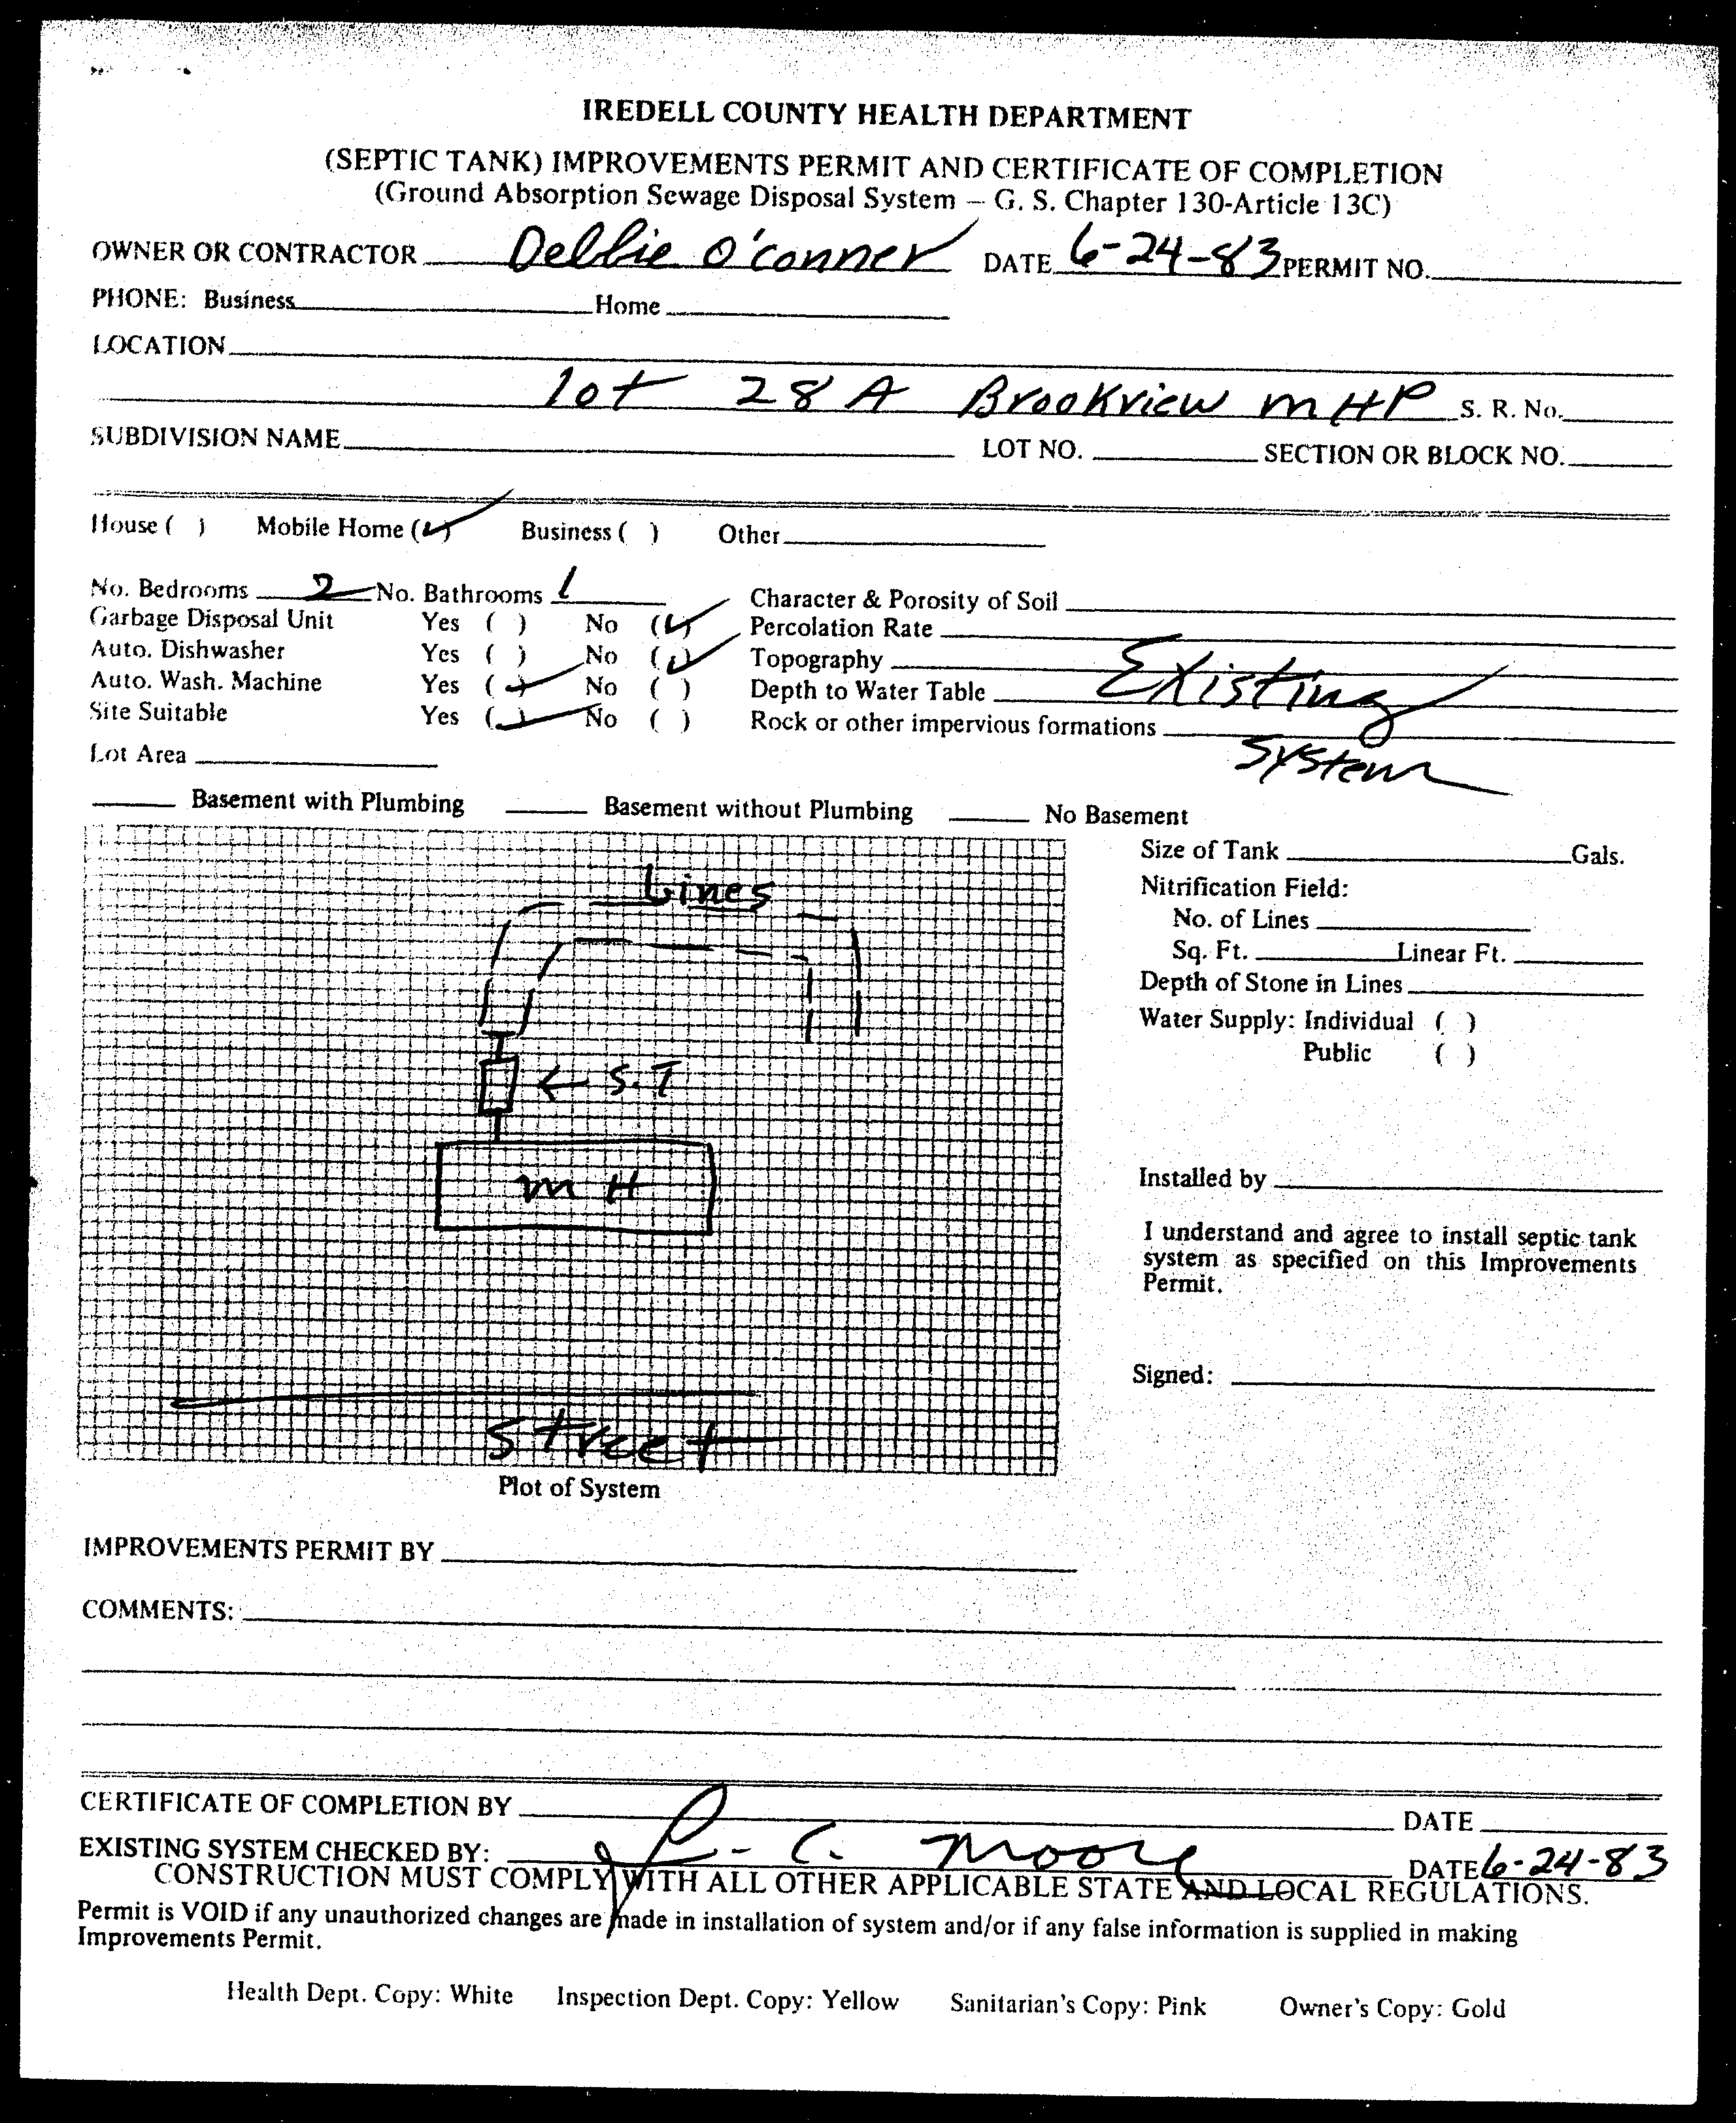 IREDELL COUNTY HEALTH DEPARTMENT
(SEPTIC TANK) IMPROVEMENTS PERMIT AND CERTIFICATE OF COMPLETION
(Ground Absorption Sewage Disposal System – G. S. Chapter 130-Article 13C)
OWNER OR CONTRACTOR Debbie O'conner DATE 6-24-83 PERMIT NO.
PHONE: Business Home
LOCATION
lot 28 A Brookview MHP S. R. No.
SUBDIVISION NAME LOT NO. SECTION OR BLOCK NO.
House ( ) Mobile Home (✓) Business ( ) Other
No. Bedrooms 2 No. Bathrooms 1 Character & Porosity of Soil
Garbage Disposal Unit Yes ( ) No (✓) Percolation Rate
Auto. Dishwasher Yes ( ) No (✓) Topography Existing
Auto. Wash. Machine Yes (✓) No ( ) Depth to Water Table
Site Suitable Yes (✓) No ( ) Rock or other impervious formations
System
Lot Area
Basement with Plumbing Basement without Plumbing No Basement
Size of Tank Gals.
Lines
Nitrification Field:
No. of Lines
Sq. Ft. Linear Ft.
Depth of Stone in Lines
Water Supply: Individual ( )
Public ( )
← S.T
MH
Installed by
I understand and agree to install septic tank
system as specified on this Improvements
Permit.
Signed:
Street
Plot of System
IMPROVEMENTS PERMIT BY
COMMENTS:
CERTIFICATE OF COMPLETION BY DATE
EXISTING SYSTEM CHECKED BY: L. C. Moore DATE 6-24-83
CONSTRUCTION MUST COMPLY WITH ALL OTHER APPLICABLE STATE AND LOCAL REGULATIONS.
Permit is VOID if any unauthorized changes are made in installation of system and/or if any false information is supplied in making
Improvements Permit.
Health Dept. Copy: White Inspection Dept. Copy: Yellow Sanitarian's Copy: Pink Owner's Copy: Gold